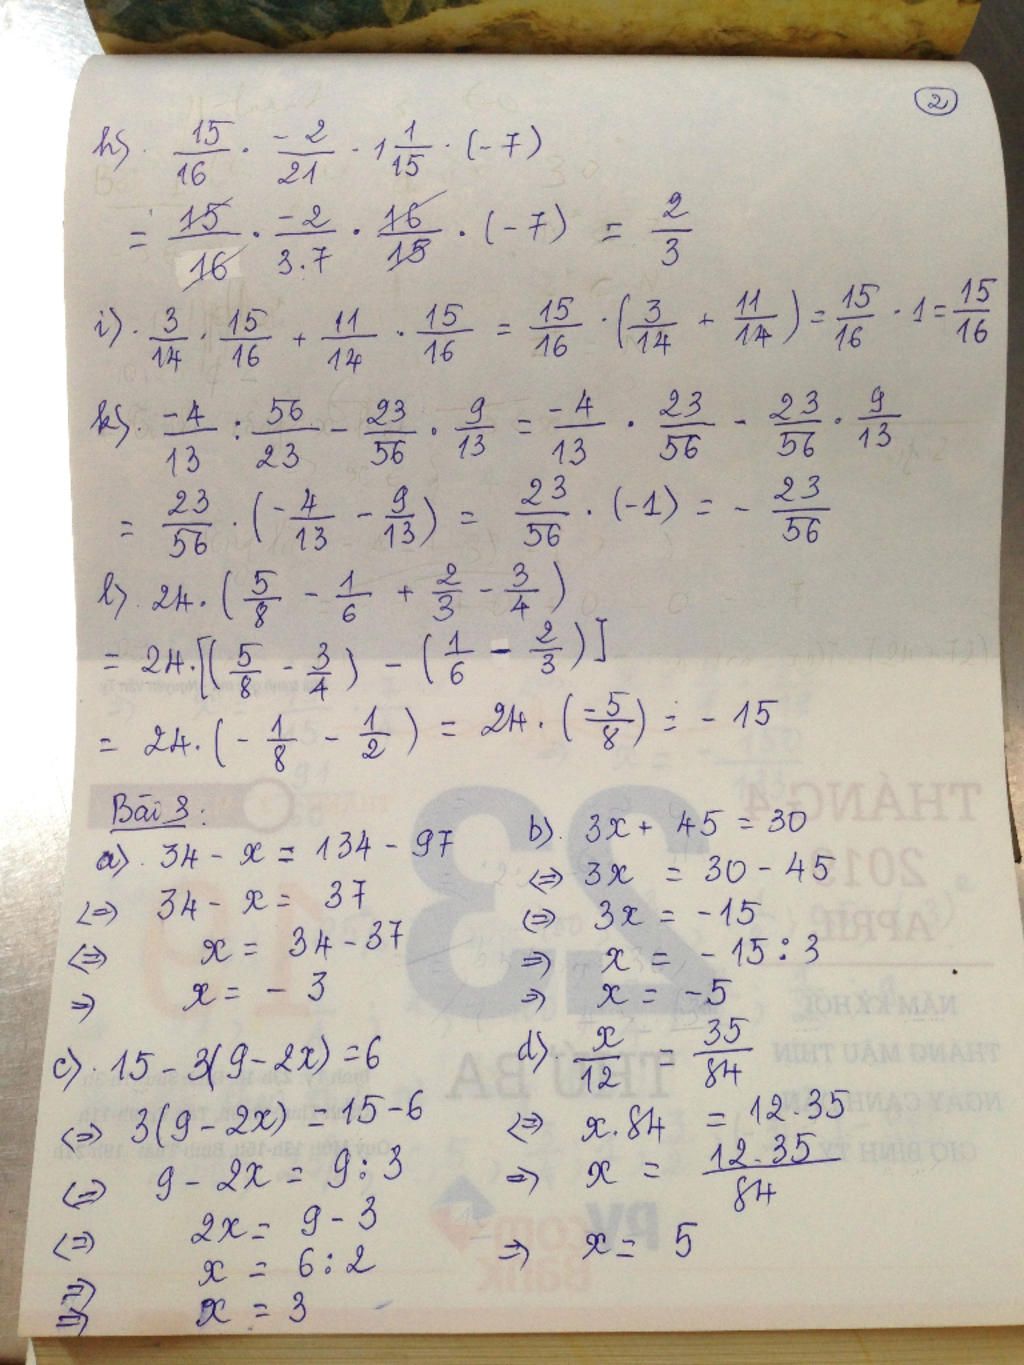 2
h). 15/16 . -2/21 . 1 1/15 . (-7)
= 15/16 . -2/3.7 . 16/15 . (-7) = 2/3
i). 3/14 . 15/16 + 11/14 . 15/16 = 15/16 . (3/14 + 11/14) = 15/16 . 1 = 15/16
k). -4/13 : 56/23 - 23/56 . 9/13 = -4/13 . 23/56 - 23/56 . 9/13
= 23/56 . (-4/13 - 9/13) = 23/56 . (-1) = - 23/56
l). 24. (5/8 - 1/6 + 2/3 - 3/4)
= 24. [(5/8 - 3/4) - (1/6 - 2/3)]
= 24. (- 1/8 - 1/2) = 24. (-5/8) = - 15
Bài 3:
a). 34 - x = 134 - 97
<=> 34 - x = 37
<=> x = 34 - 37
=> x = - 3
b). 3x + 45 = 30
<=> 3x = 30 - 45
<=> 3x = -15
=> x = - 15 : 3
=> x = -5
c). 15 - 3(9 - 2x) = 6
<=> 3(9 - 2x) = 15 - 6
<=> 9 - 2x = 9 : 3
<=> 2x = 9 - 3
=> x = 6 : 2
=> x = 3
d). x/12 = 35/84
<=> x.84 = 12.35
=> x = 12.35/84
=> x = 5
THÁNG 4
2019
APRIL
23
THỨ BA
NĂM KỶ HỢI
THÁNG MẬU THÌN